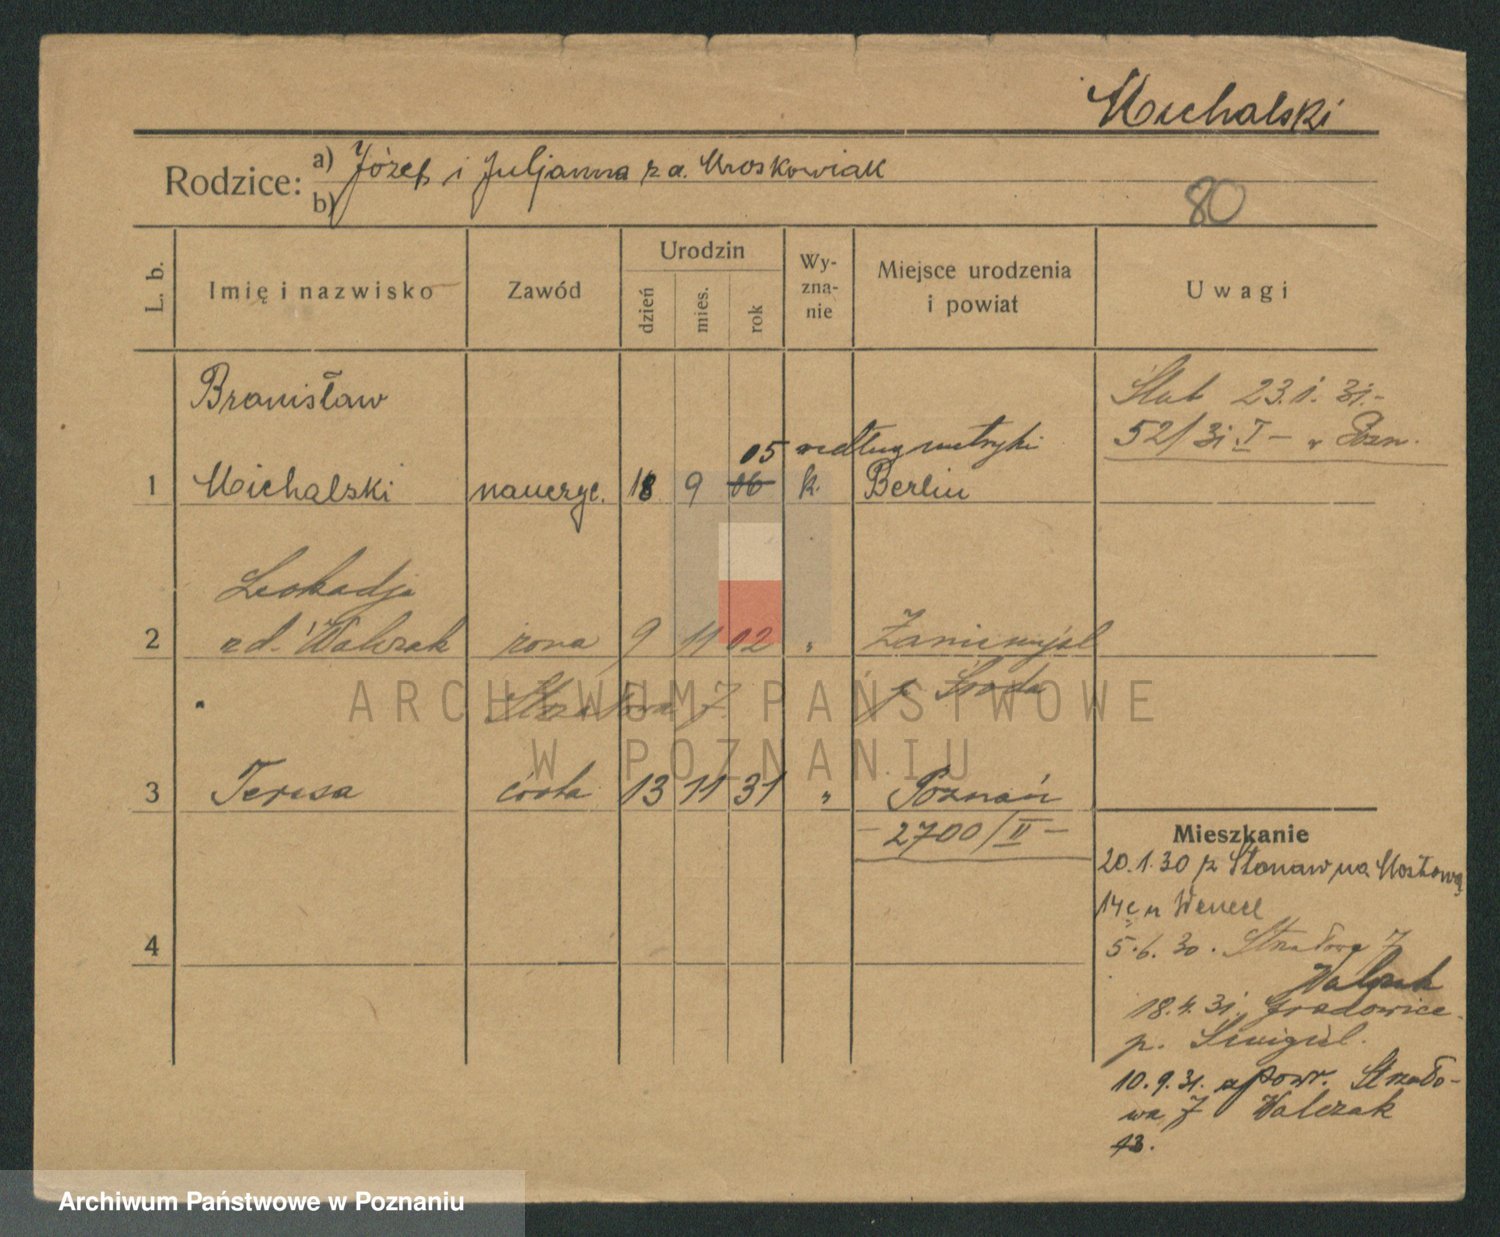 Michalski
Rodzice: a) Józef i Juljanna z d. Mroskowiak
b)
80
L. b.
Imię i nazwisko
Zawód
Urodzin
dzień
mies.
rok
Wy-
zna-
nie
Miejsce urodzenia
i powiat
Uwagi
Bronisław
Ślub 23.1.31.-
52/31 I - Pozn.
05 według metryki
1 Michalski nauczyc. 18 9 06 k. Berlin
Leokadja
2 z d. Walczak żona 9 11 02 " Zaniemyśl
Strzałowa 7. p. Środa
3 Teresa córka 13 11 31 " Poznań
- 2700/II -
4
Mieszkanie
20.1.30 z Stonaw na Mostową
14c u Wenzel
5.6.30. Strzałowa 7
Walczak
18.4.31. Gradowice
p. Śmigiel.
10.9.31. z powr. Strzało-
wa 7 Walczak
13.
ARCHIWUM PAŃSTWOWE
W POZNANIU
Archiwum Państwowe w Poznaniu